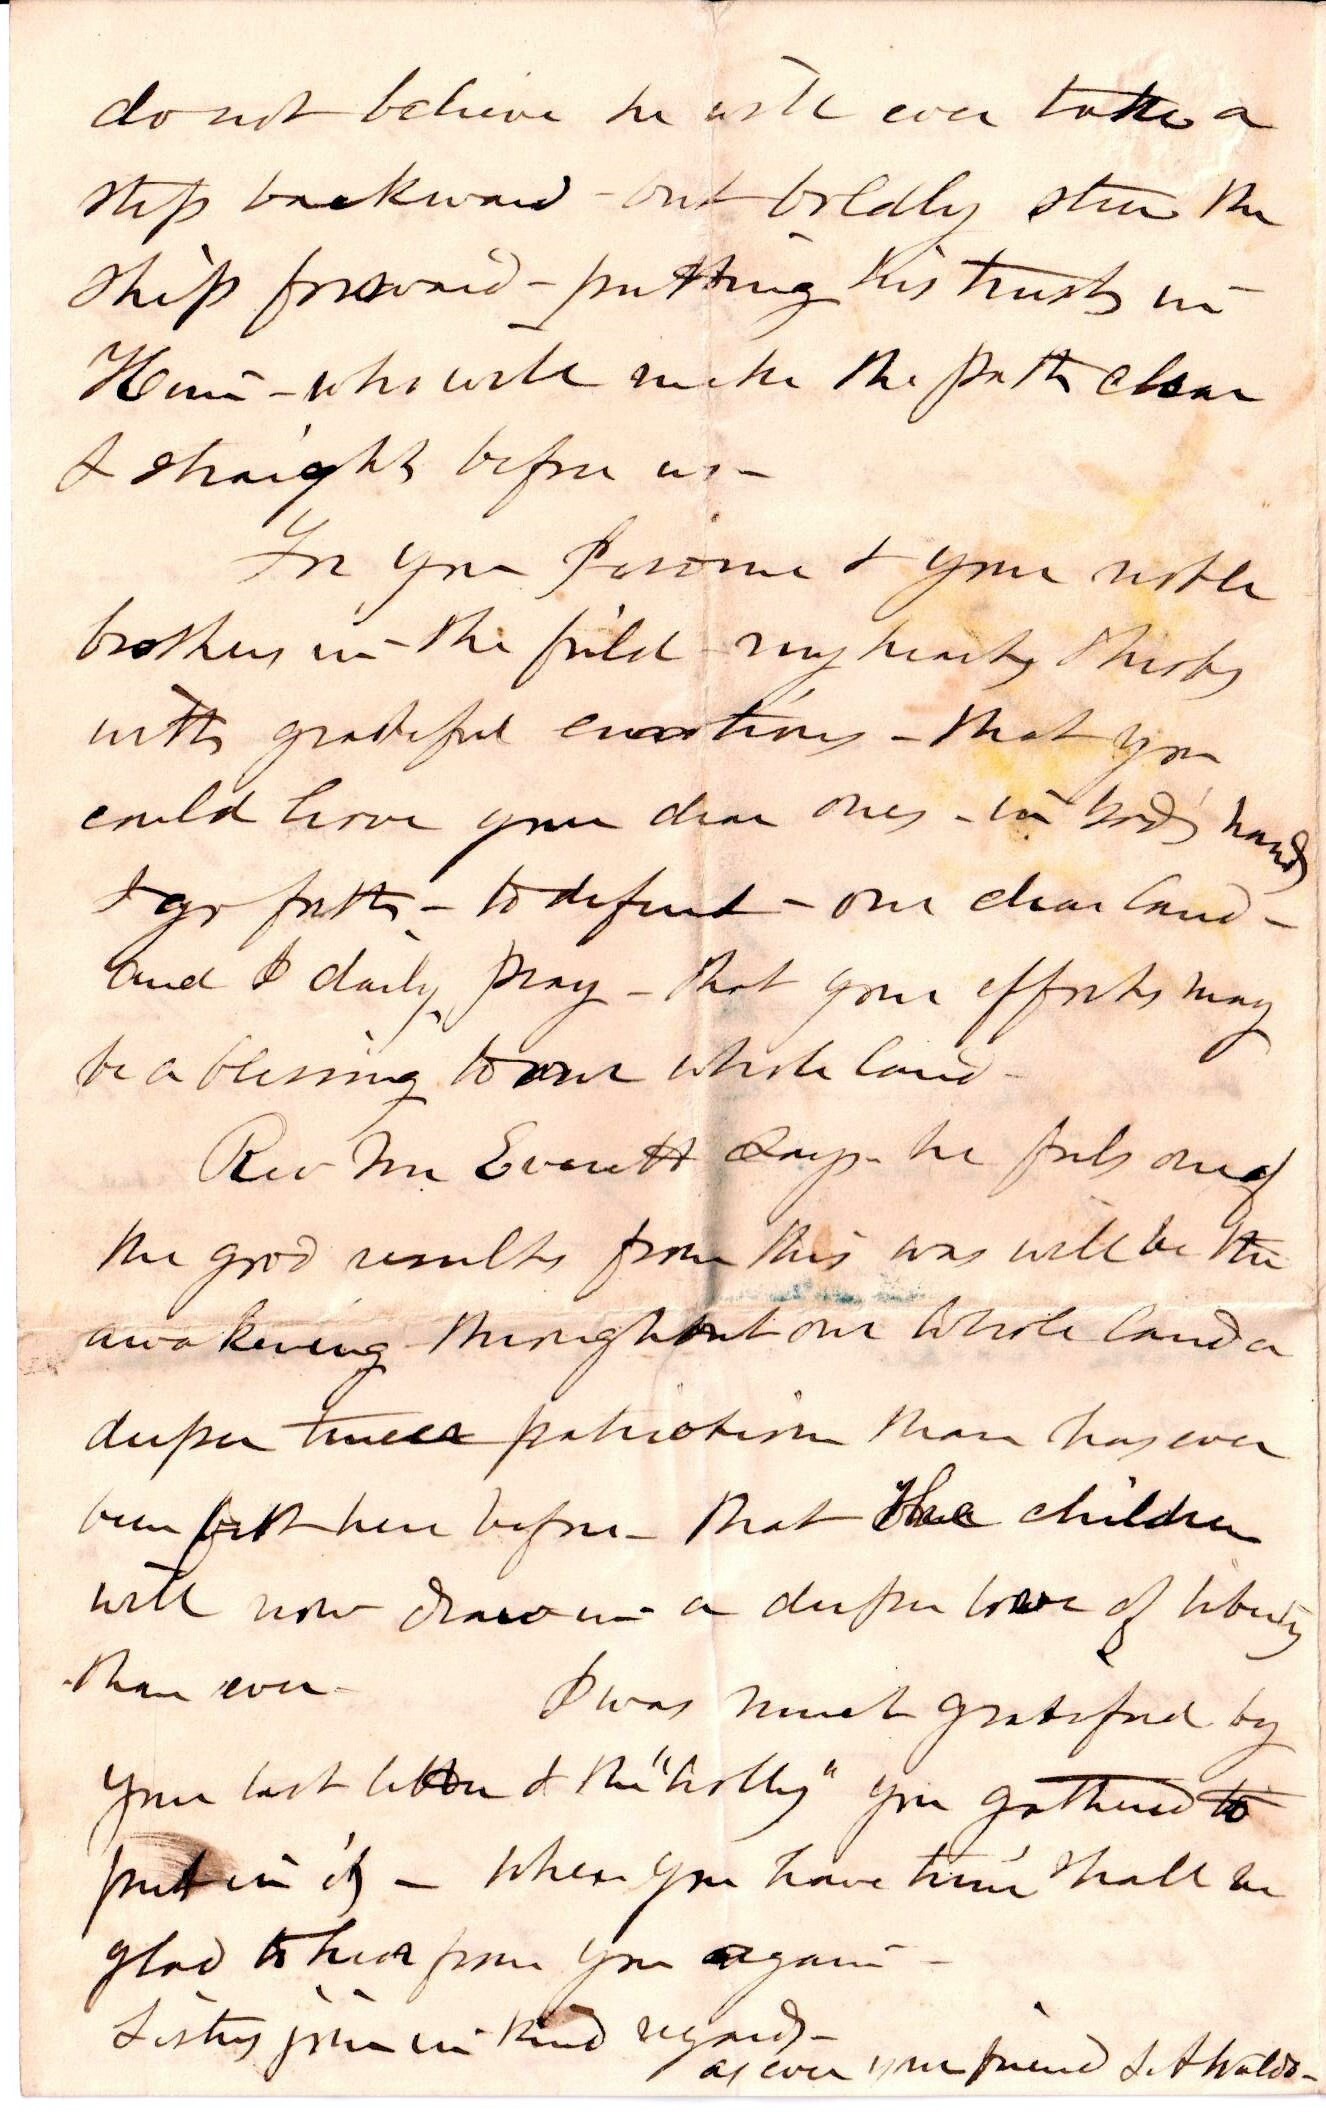 do not believe he will ever take a
step backward - but boldly steer the
ship forward - putting his trust in
Him - who will make the path clear
& straight before us -
For you Parsons & your noble
brothers in the field - my heart throbs
with grateful emotions - that you
could leave your dear ones - in God's hands
& go forth - to defend - our dear land -
and I daily pray - that your efforts may
be a blessing to our whole land -
Rev Mr Everett says - he feels one of
the good results from this war will be the
awakening throughout our whole land a
deeper truer patriotism than has ever
been felt here before - that the children
will now draw in a deeper love of liberty
than ever - I was much gratified by
your last letter & the "holly" you gathered to
put in it - When you have time shall be
glad to hear from you again -
Sisters join in kind regards -
as ever your friend S. A. Waldo -